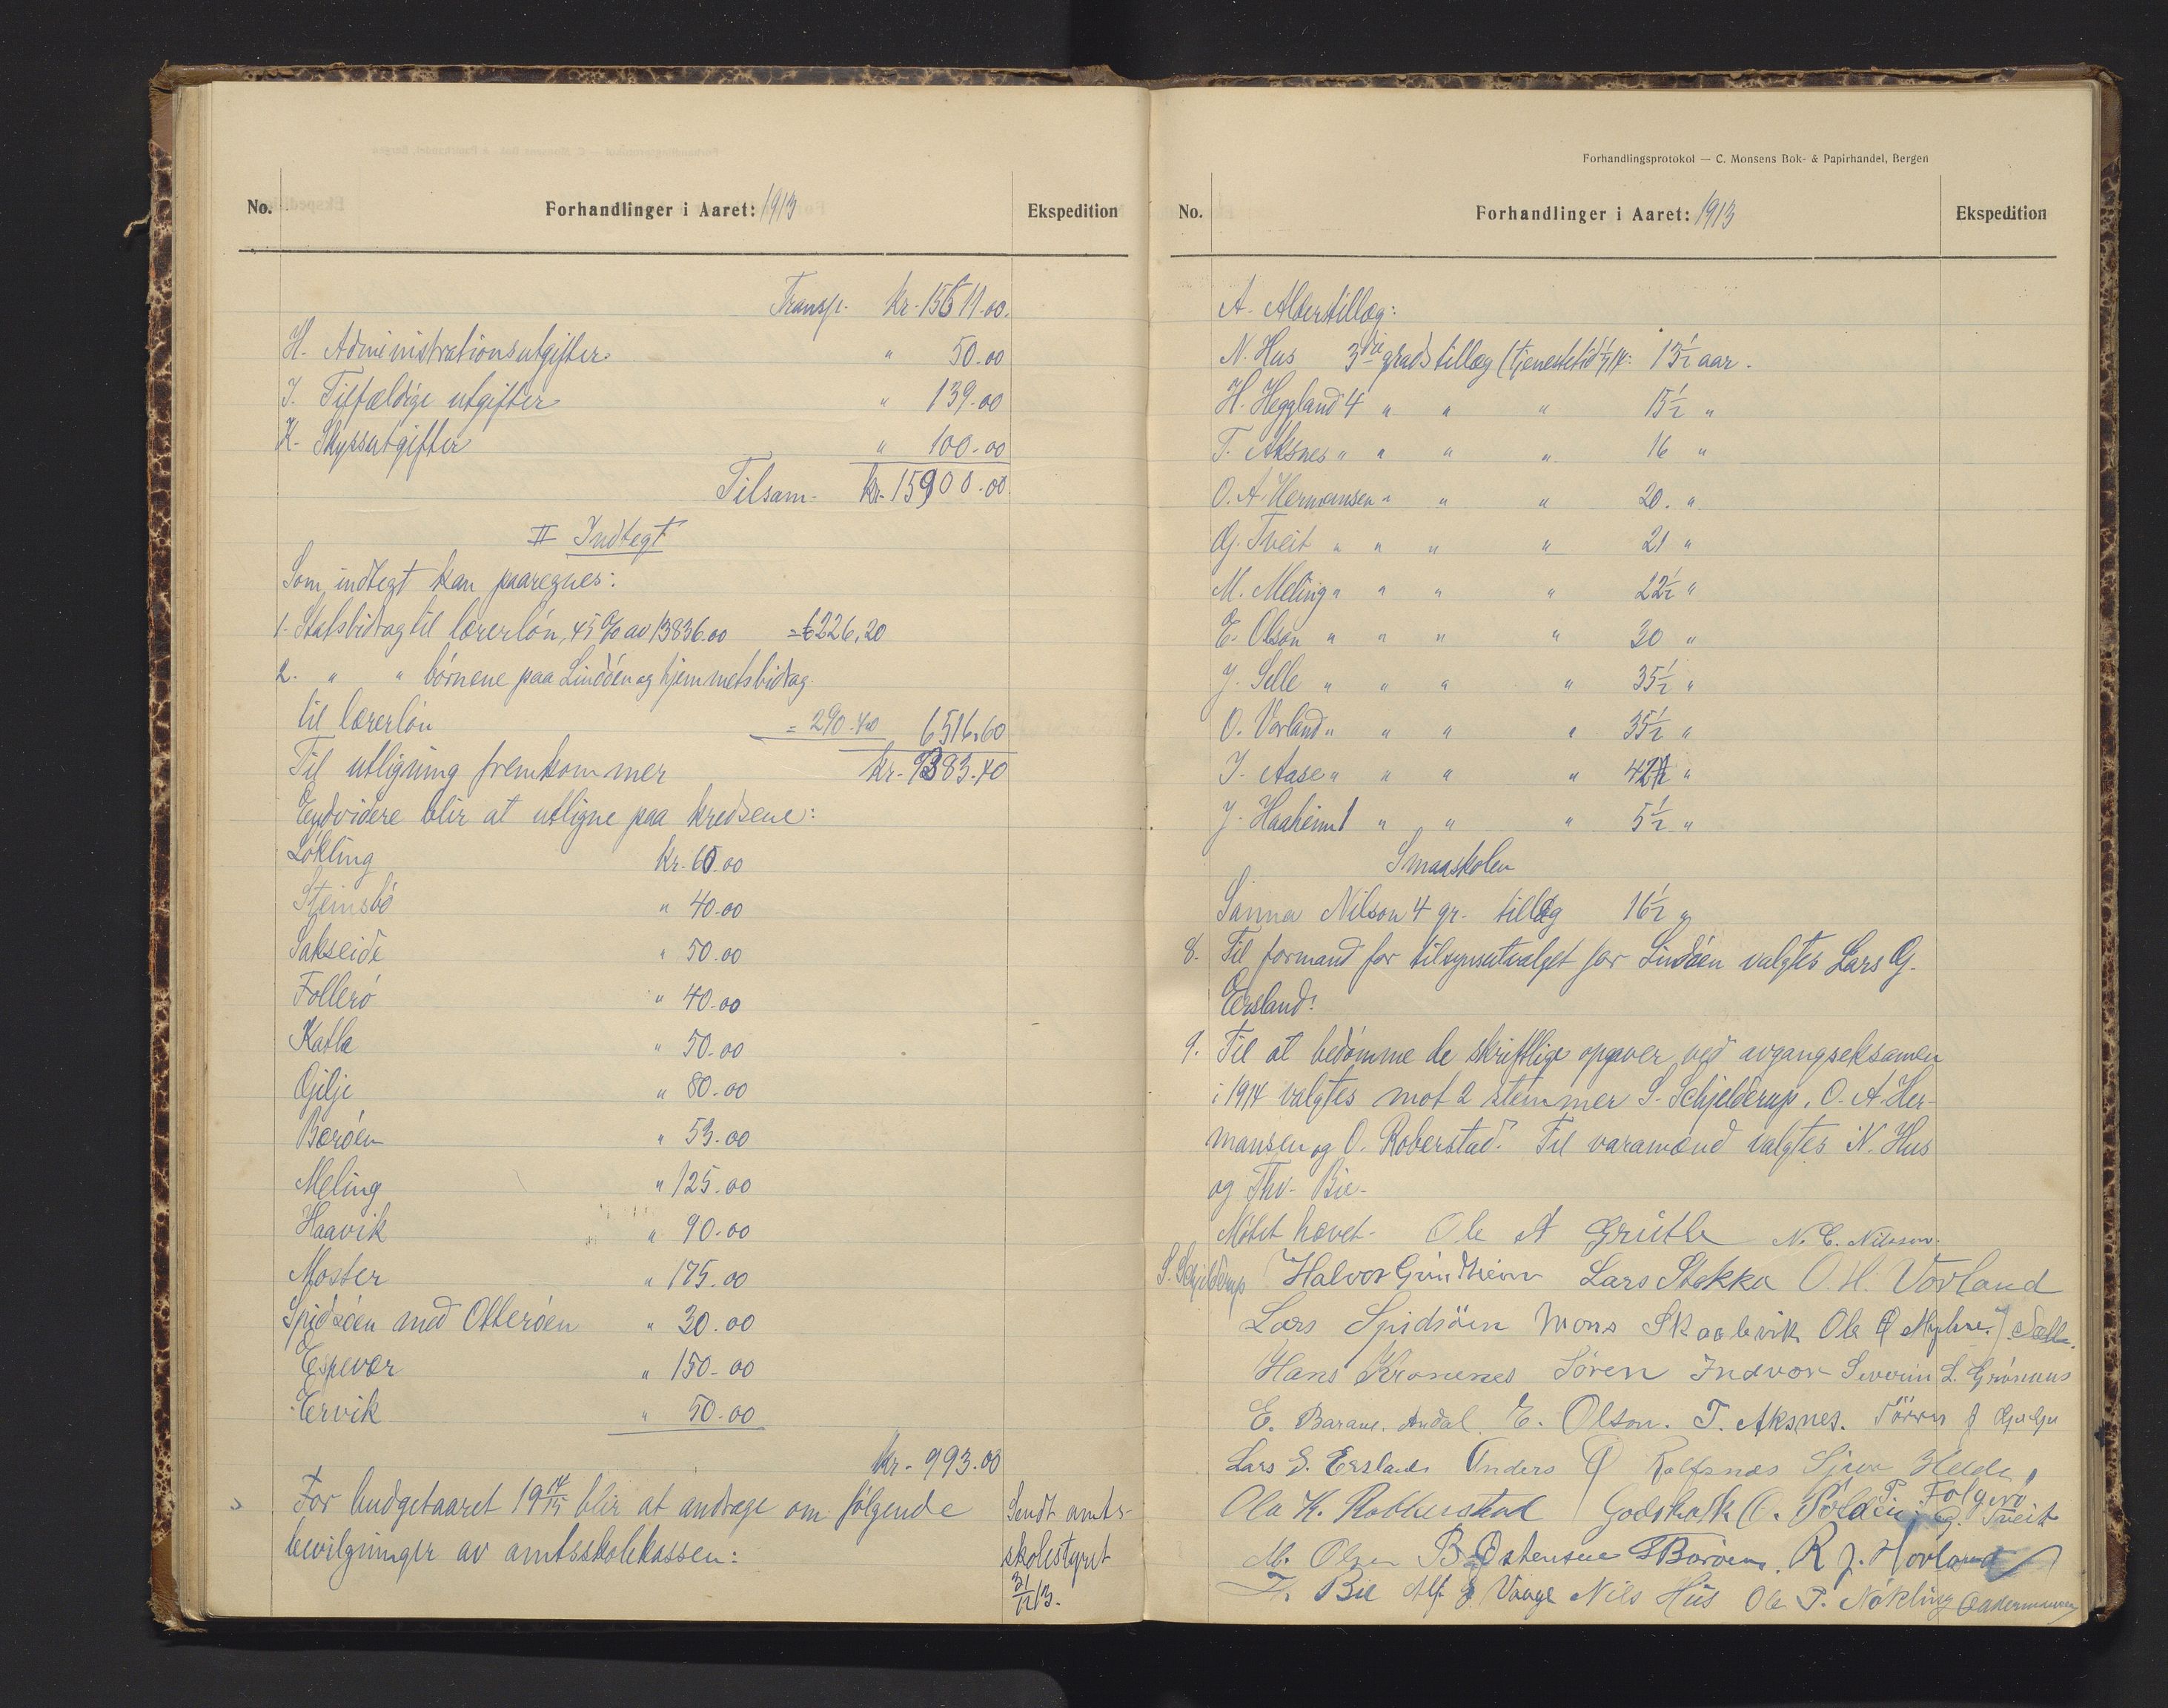 No.
Forhandlinger i Aaret: 1913
Ekspedition
Transp. Kr. 15611.00.
H. Administrationsutgifter " 50.00
I. Tilfældige utgifter " 139.00
K. Skyssutgifter " 100.00
Tilsam. Kr. 15900.00
II Indtegt
Som indtegt kan paaregnes:
1. Statsbidrag til lærerløn, 45 % av 13836.00 = 6226,20
2. " " børnene paa Lindøen og hjemmetsbidrag
til lærerløn = 290.40 6516.60
Til utligning fremkommer Kr. 9383.40
Endvidere blir at utligne paa kredsene:
Løkling Kr. 60.00
Steinsbø " 40.00
Sakseide " 50.00
Follerø " 40.00
Katla " 50.00
Gilje " 80.00
Børøen " 53.00
Meling " 125.00
Haavik " 90.00
Moster " 175.00
Spidsøen med Otterøen " 30.00
Espevær " 150.00
Ervik " 50.00
Kr. 993.00
For budgetaaret 1914/15 blir at andrage om følgende
bevilgninger av amtsskolekassen:
Sendt amts-
skolestyret
31/12 13.
Forhandlingsprotokol — C. Monsens Bok- & Papirhandel, Bergen
No.
Forhandlinger i Aaret: 1913
Ekspedition
A. Alderstillæg:
N. Hus 3die gradstillæg (tjenestetid 1/7 14: 13 1/2 aar.
H. Heggland 4 " " " 15 1/2 "
T. Aksnes " " " " 16 "
O. A. Hermansen " " " 20. "
G. Tveit " " " " 21 "
M. Meling " " " " 22 1/2 "
E. Olson " " " " 30 "
J. Selle " " " " 35 1/2 "
O. Vorland " " " " 35 1/2 "
J. Aase " " " " 42 "
J. Haaheim 1 " " " 5 1/2 "
Smaaskolen
Sanna Nilson 4 gr. tillæg 16 1/2 "
8. Til formand for tilsynsutvalget for Lindøen valgtes Lars G.
Ersland.
9. Til at bedømme de skriftlige opgaver ved avgangseksamen
i 1914 valgtes mot 2 stemmer S. Schjelderup, O. A. Her-
mansen og O. Roberstad. Til varamænd valgtes N. Hus
og Thv. Bie.
Møtet hævet. Ole A Grutle N. C. Nilsson.
S. Schjelderup Halvor Grindheim Lars Stokka O. H. Vorland
Lars Spidsöen Mons Skaalevik Ole J. Selle.
Hans Kronenes Sören Indvær Severin L. Grönnevs
E. Barane. E. Olson. T. Aksnes. Sören
Lars G. Ersland Anders Rolfsnæs
T. Folgerø
Ole K. Robberstad Godskalk G. Tveit
M. Olsen B Østensen R J. Hovland
Th. Bie Alf Vaage Nils Hus Ole T. Nökling